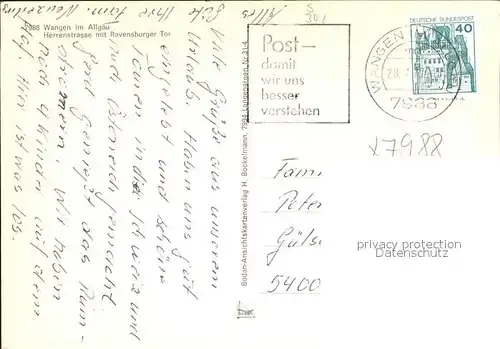 7988 Wangen im Allgäu
Herrenstrasse mit Ravensburger Tor
Viele Grüße aus unserem
Urlaub. Haben uns gut
eingelebt und schöne
Touren in die Schweiz und
nach Österreich gemacht
Gerd genießt das
Wir haben
noch 4 Kinder auf dem
Hof. Hier ist was los.
Alles
Gute Ihre Fam.
Bodan-Ansichtskartenverlag H. Bockelmann, 7994 Langenargen, Nr. 31-4
Post–
damit
wir uns
besser
verstehen
WANGEN
28.7
7988
DEUTSCHE BUNDESPOST
40
x7988
Fam.
Peter
Güls
5400
privacy protection
Datenschutz